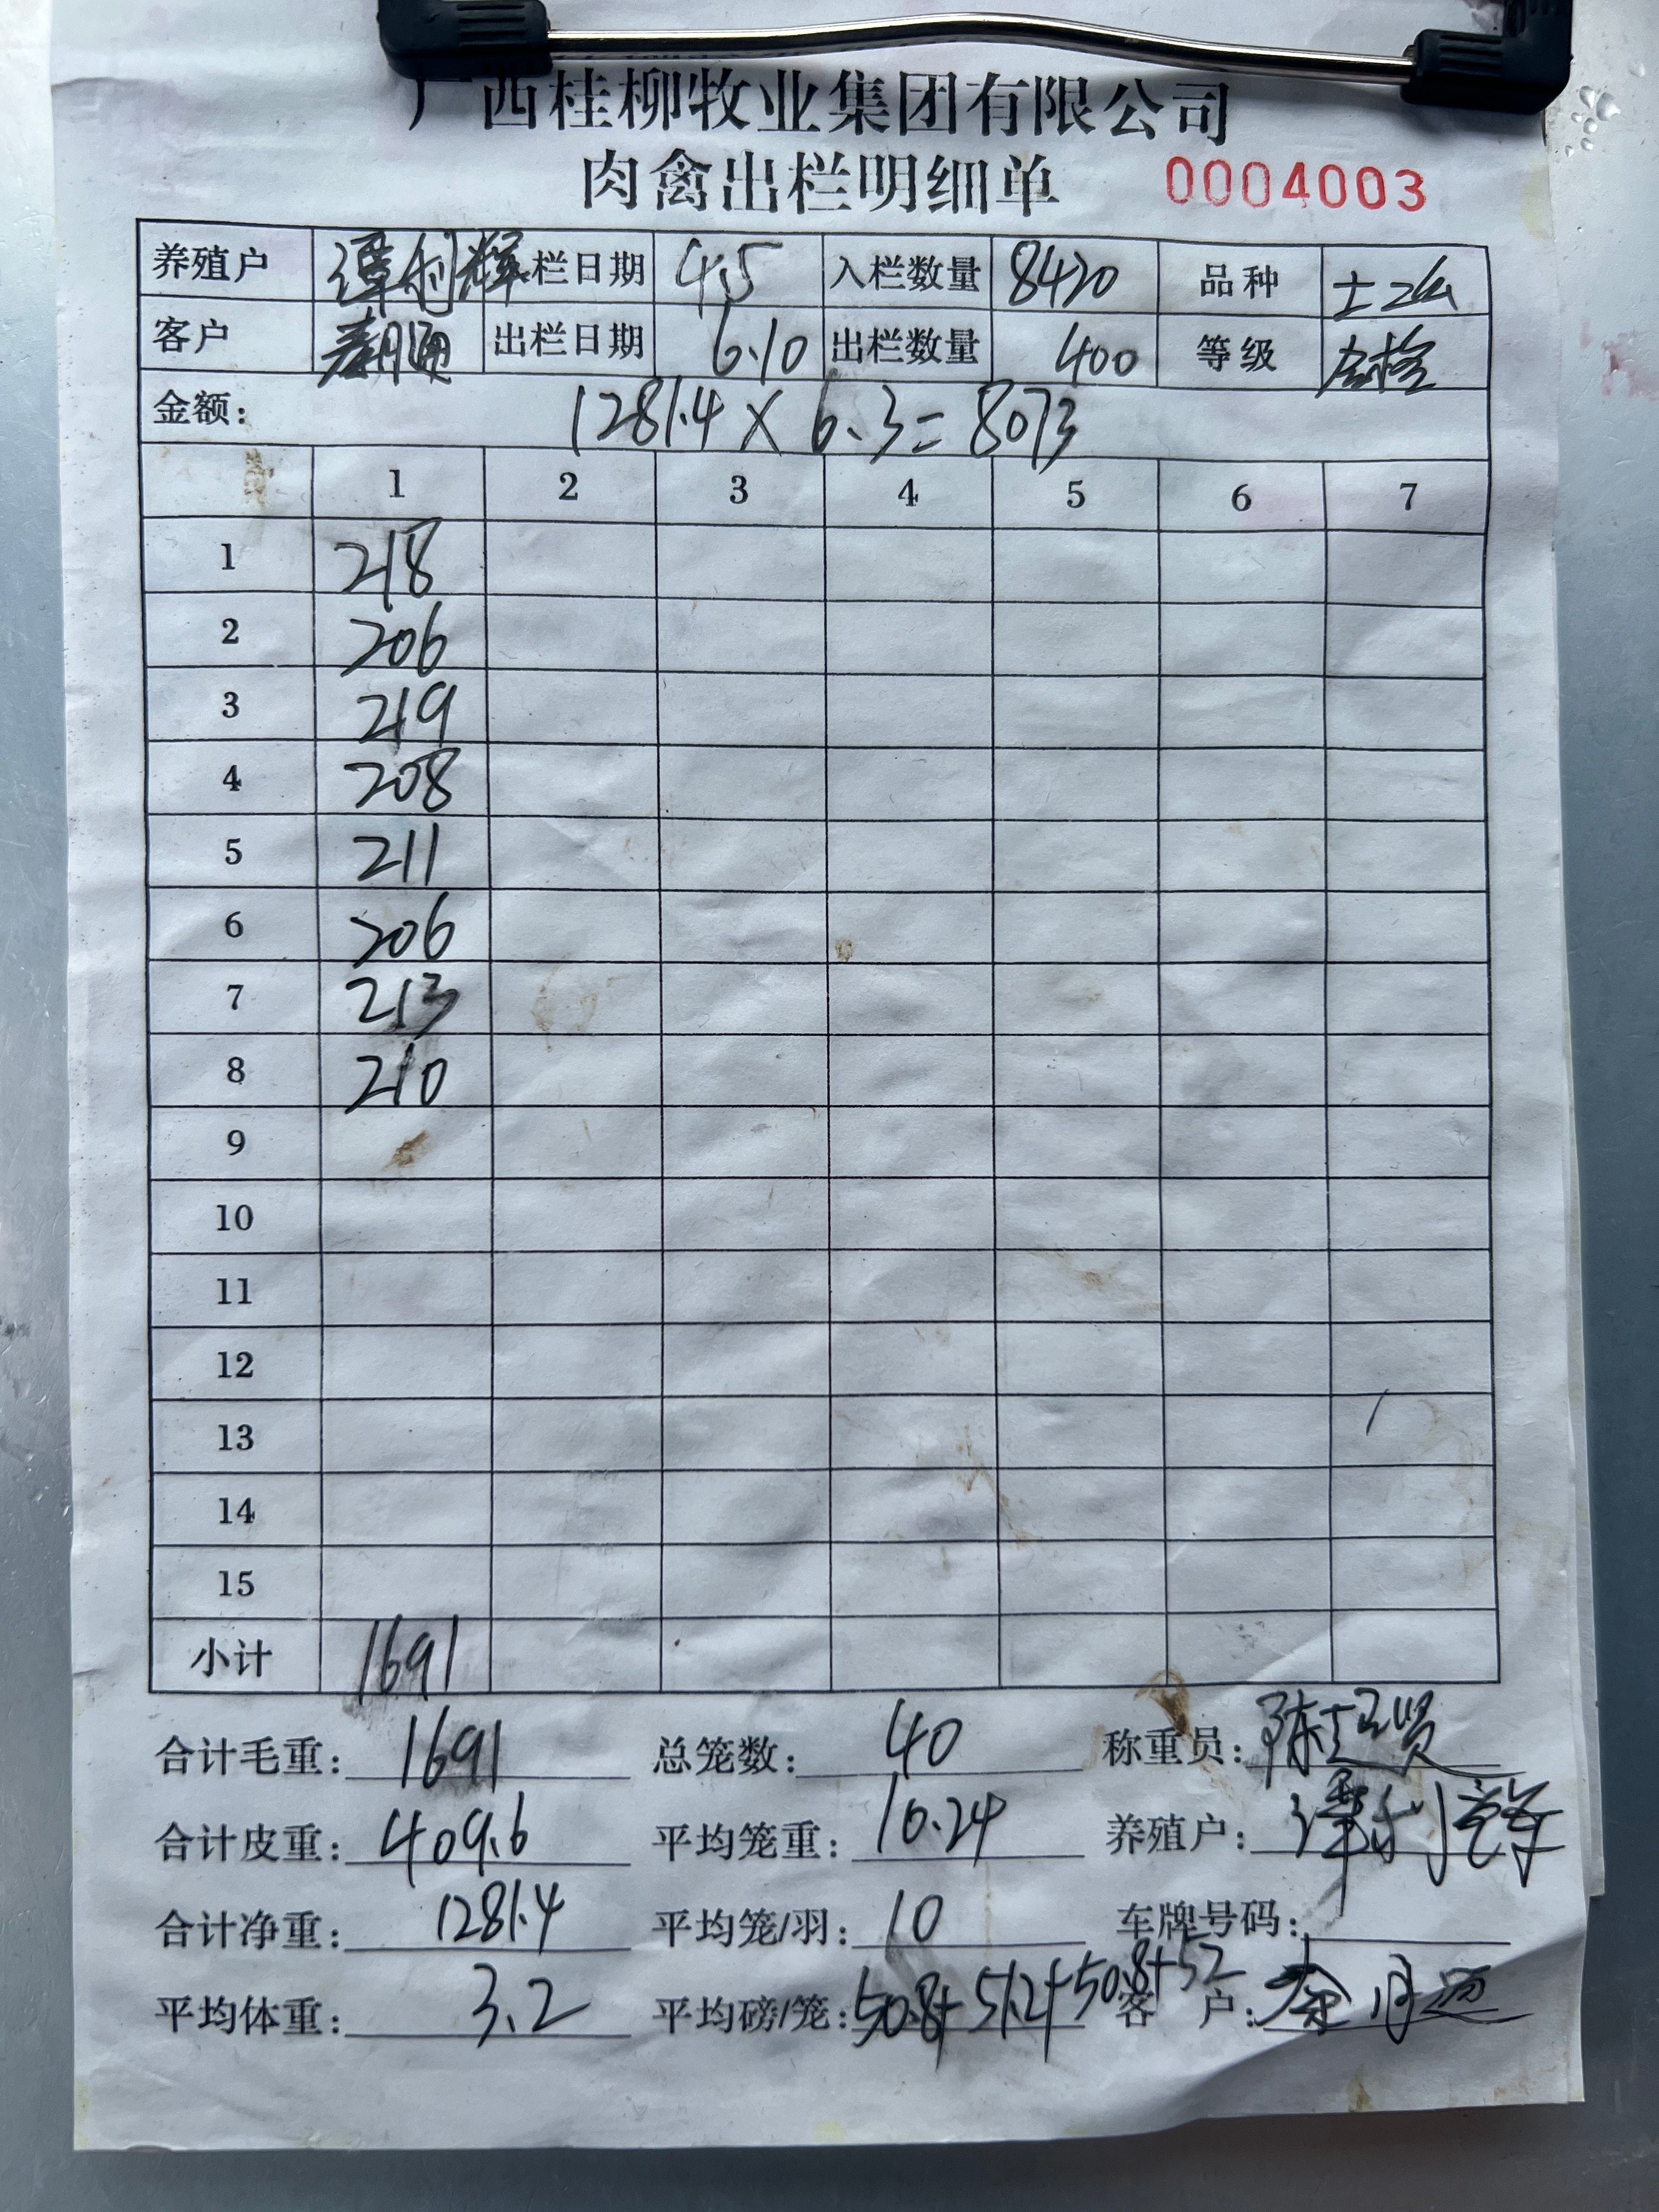 广西桂柳牧业集团有限公司
肉禽出栏明细单 0004003
养殖户 谭利辉 栏日期 4.5 入栏数量 8420 品种 土2公
客户 出栏日期 6.10 出栏数量 400 等级 合格
金额: 1281.4 × 6.3 = 8073
1 2 3 4 5 6 7
1 218
2 206
3 219
4 208
5 211
6 206
7 213
8 210
9
10
11
12
13
14
15
小计 1691
合计毛重: 1691 总笼数: 40 称重员: 陈超贤
合计皮重: 409.6 平均笼重: 10.24 养殖户: 谭利辉
合计净重: 1281.4 平均笼/羽: 10 车牌号码:
平均体重: 3.2 平均磅/笼: 50.8+51.2+50.8+52 客户: